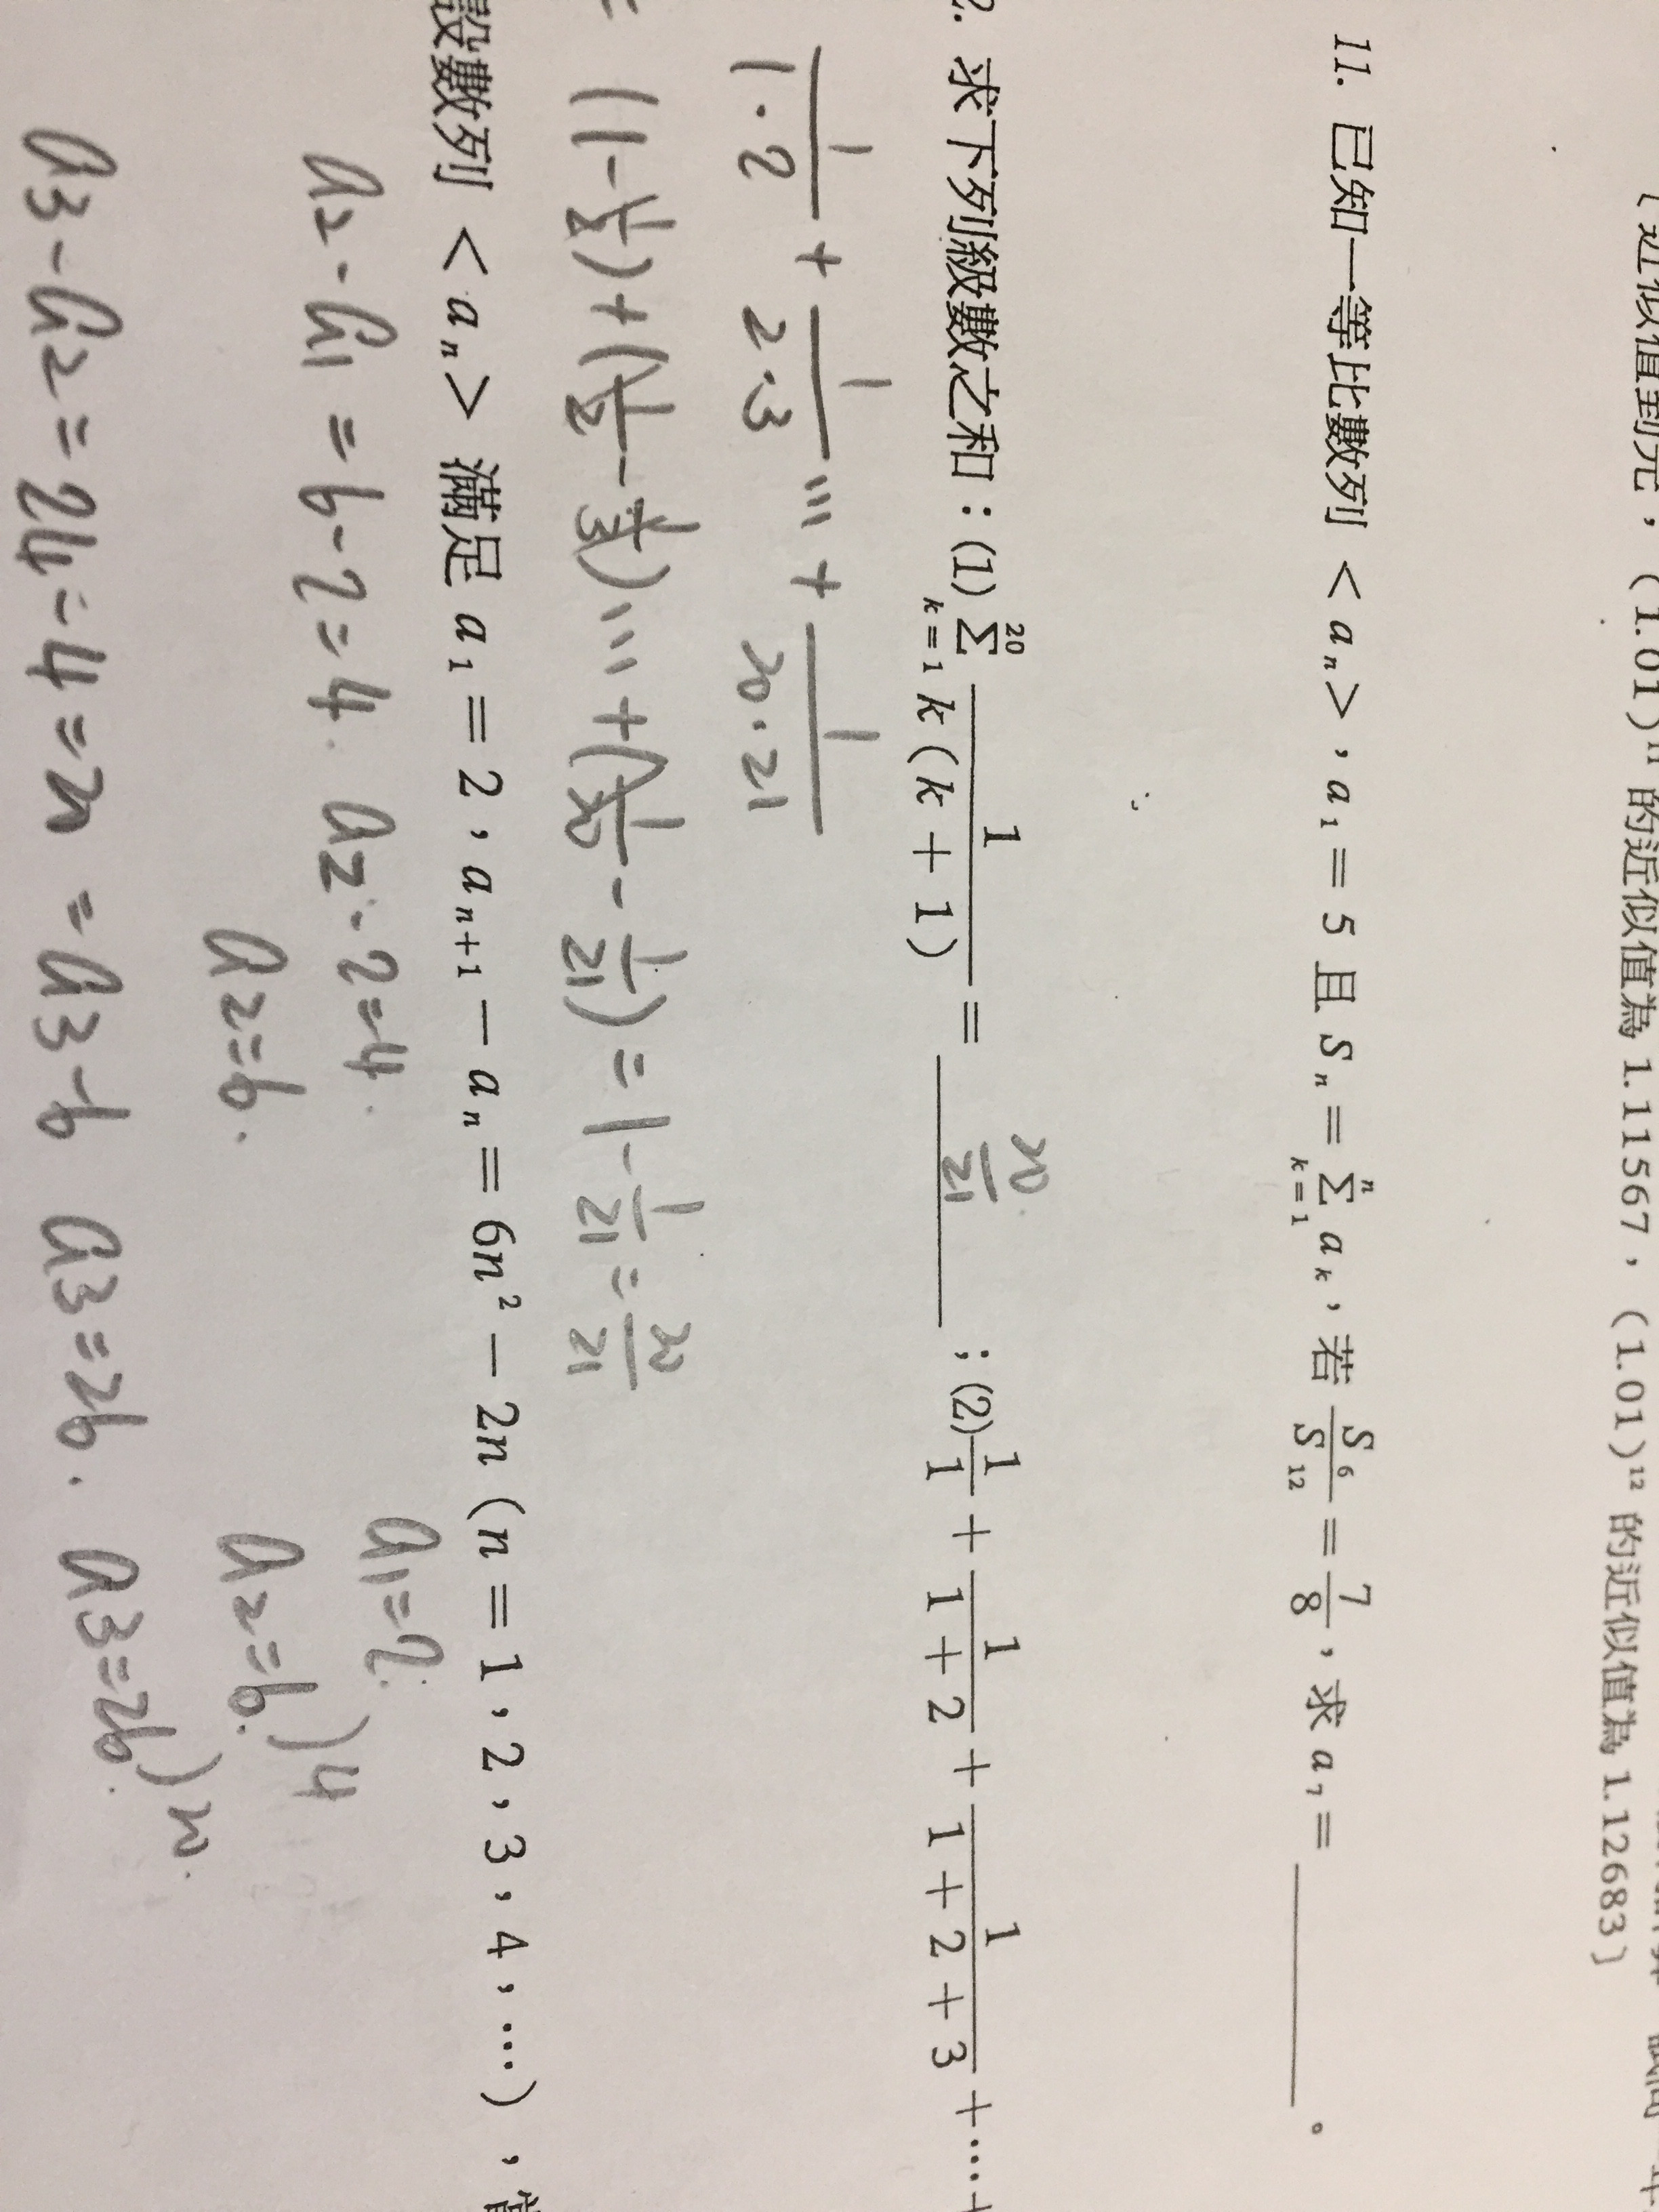 〔近似值到元，(1.01)¹¹ 的近似值為 1.11567，(1.01)¹² 的近似值為 1.12683〕
11. 已知一等比數列 < aₙ >，a₁ = 5 且 Sₙ = Σ_{k=1}^{n} aₖ，若 S₆/S₁₂ = 7/8，求 a₇ = ______。
2. 求下列級數之和：(1) Σ_{k=1}^{20} 1/(k(k+1)) = 20/21；(2) 1/1 + 1/(1+2) + 1/(1+2+3) + ⋯ +
1/(1·2) + 1/(2·3) ⋯ + 1/(20·21)
= (1-1/2) + (1/2-1/3) ⋯ + (1/20-1/21) = 1-1/21 = 20/21
設數列 < aₙ > 滿足 a₁ = 2，aₙ₊₁ − aₙ = 6n² − 2n (n = 1，2，3，4，⋯)，
a₂-a₁ = 6-2=4. a₂-2=4. a₁=2.
a₂=6. a₂=6. )4
a₃-a₂=24-4=20 = a₃-6 a₃=26. a₃=26. )20.